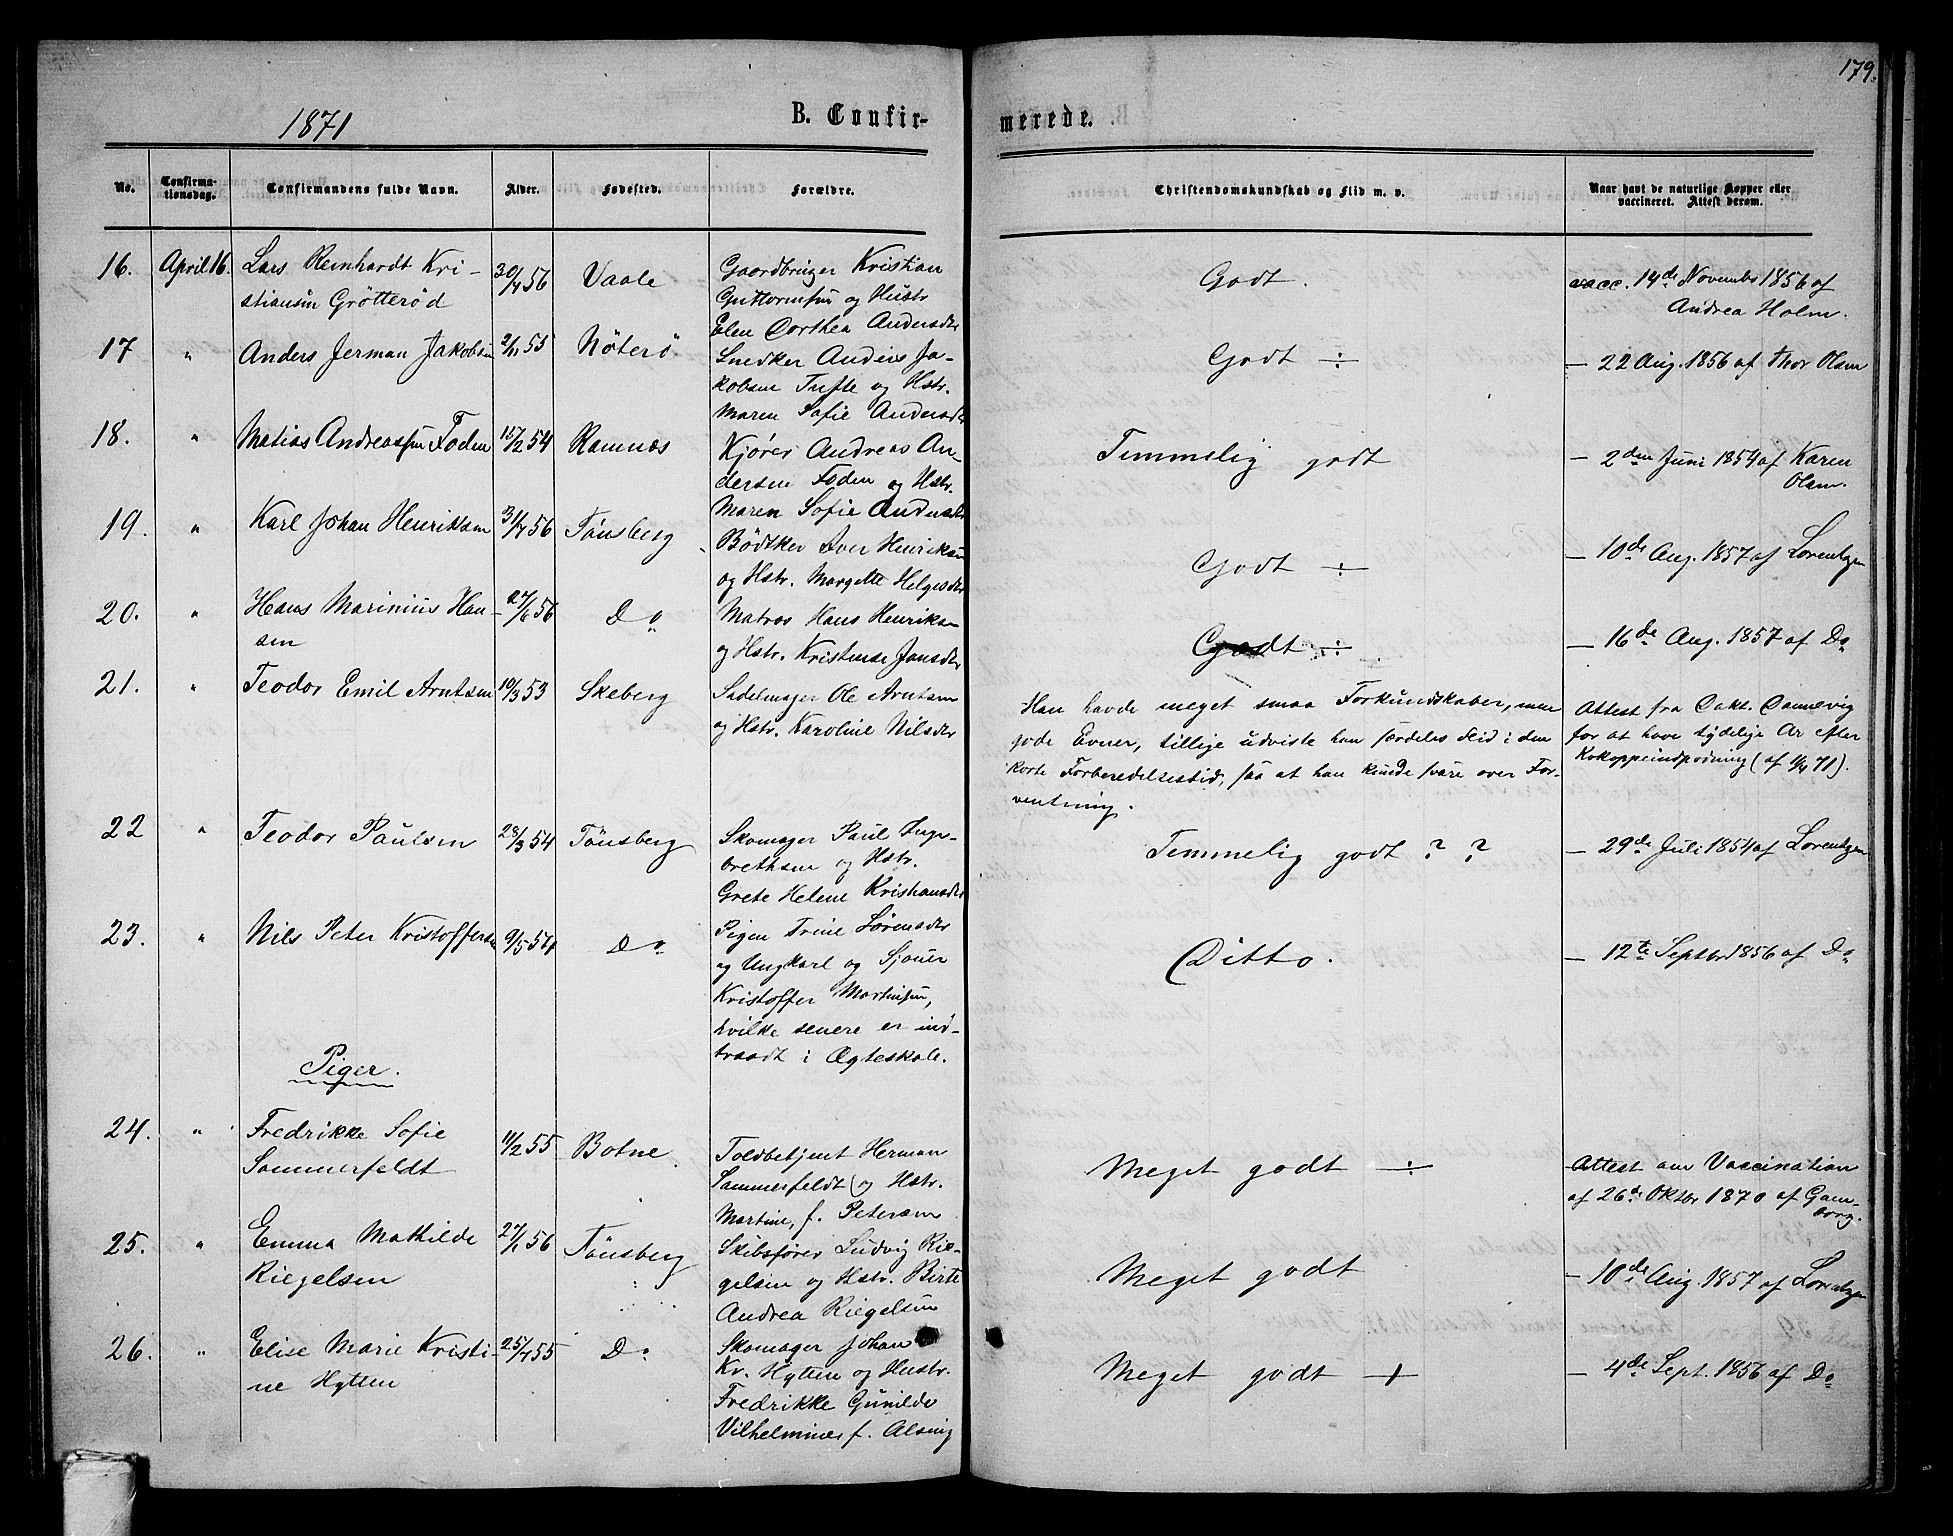 179.
1871
B. Confirmerede.
No. Confirmationsdag. Confirmandens fulde Navn. Alder. Fødested. Forældre. Christendomskundskab og Flid m. v. Naar havt de naturlige Kopper eller vaccineret. Attest derom.
16. April 16. Lars Reinhardt Kri- 30/4 56 Vaale Gaardbruger Kristian Godt. vacc. 14de Novembr 1856 af
stiansen Grötteröd Guttormsen og Hustr Andrea Holm.
Elen Dorthea Andersdtr
17 " Anders Jerman Jakobsen 55 Nöterö Snedker Anders Ja- Godt ÷ — 22 Aug. 1856 af Thor Olsen
kobsen Tufte og Hstr.
Maren Sofie Andersdtr
18. " Matias Andreassen Foden 15/2 54 Ramnæs Kjører Andreas An- Temmelig godt — 2den Juni 1854 af Karen
dersen Foden og Hstr. Olsen.
Maren Sofie Andersdtr
19. " Karl Johan Henriksen 56 Tönsberg Bödtker Iver Henriksen Godt ÷ — 10de Aug. 1857 af Lorentzen
og Hstr. Margette Helgesdtr
20. " Hans Marinius Han- 27/6 56 Do Matros Hans Henriksen Godt ÷ — 16de Aug. 1857 af Do
sen og Hstr. Kristense Jansdtr
21. " Teodor Emil Arntsen 10/3 53 Skeberg Sadelmager Ole Arntsen Han havde meget smaa Forkundskaber, men Attest fra Dokt. Dannevig
og Hstr. Karoline Nilsdtr gode Evner, tillige udviste han særdeles Flid i den for at have tydelige Ar efter
korte Forberedelsestid, saa at han kunde svare over For- Kokoppeindpodning (af 71).
ventning.
22 " Teodor Paulsen 28/3 54 Tönsberg Skomager Paul Inge- Temmelig godt ? ? — 29de Juli 1854 af Lorentzen
brethsen og Hstr.
Grete Helene Kristiansdtr
23. " Nils Peter Kristoffersen 9/5 54 Do Pigen Trine Sörensdtr Ditto. — 12te Septbr 1856 af Do
og Ungkarl og Sjouer
Kristoffer Martinsen,
hvilke senere er ind-
traadt i Ægteskab.
Piger.
24. " Fredrikke Sofie 11/2 55 Botne Toldbetjent Herman Meget godt ÷ Attest om Vaccination
Sommerfeldt Sommerfeldt og Hstr. af 26de Oktbr 1870 af Gam-
Martine, f. Petersen borg.
25. " Emma Mathilde 27/1 56 Tönsberg Skibsfører Ludvig Rie- Meget godt — 10de Aug. 1857 af Lorentzen
Riegelsen gelsen og Hstr. Birte
Andrea Riegelsen
26. " Elise Marie Kristi- 25/4 55 Do Skomager Johan Meget godt + — 4de Sept. 1856 af Do
ne Hytten Kr. Hytten og Hustr.
Fredrikke Gunilde
Vilhelmine f. Alsing